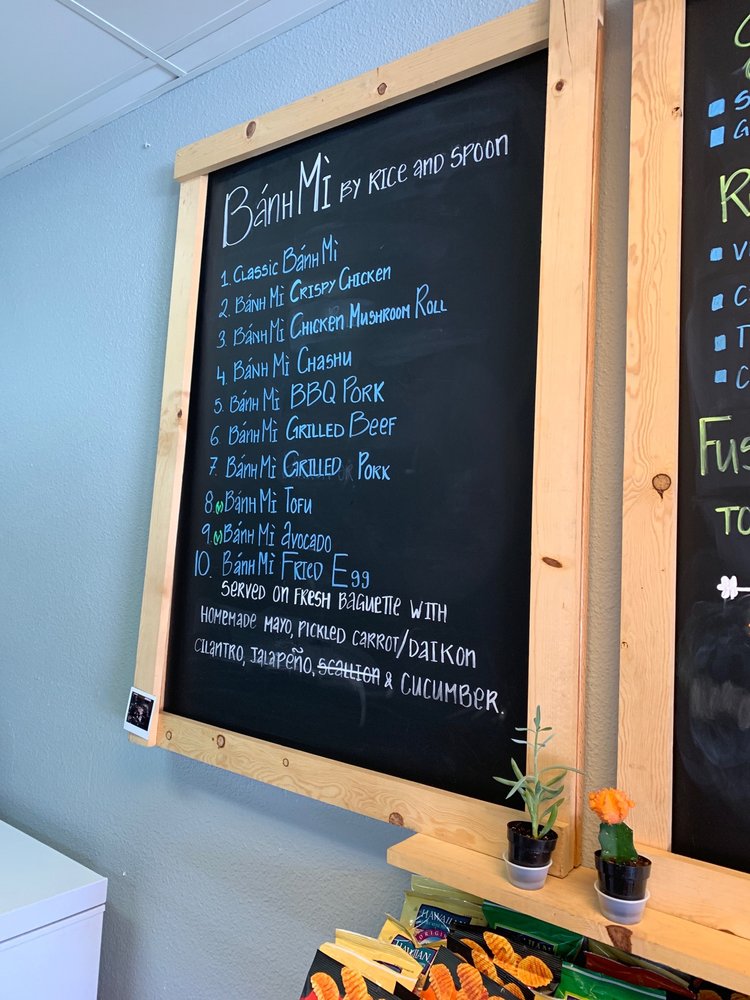 BánH Mì BY RICE AND SPOON
1. CLASSIC BÁNH Mì
2. BÁNH Mì CRISPY CHICKEN
3. BÁNH Mì CHICKEN MUSHROOM ROLL
4. BÁNH Mì CHASHU
5. BÁNH Mì BBQ PORK
6. BÁNH Mì GRILLED BEEF
7. BÁNH Mì GRILLED PORK
8. (V) BÁNH Mì TOFU
9. (V) BÁNH Mì AVOCADO
10. BÁNH Mì FRIED EGG
SERVED ON FRESH BAGUETTE WITH
HOMEMADE MAYO, PICKLED CARROT/DAIKON
CILANTRO, JALAPEÑO, SCALLION & CUCUMBER.
HAWAIIAN
HAWAIIAN